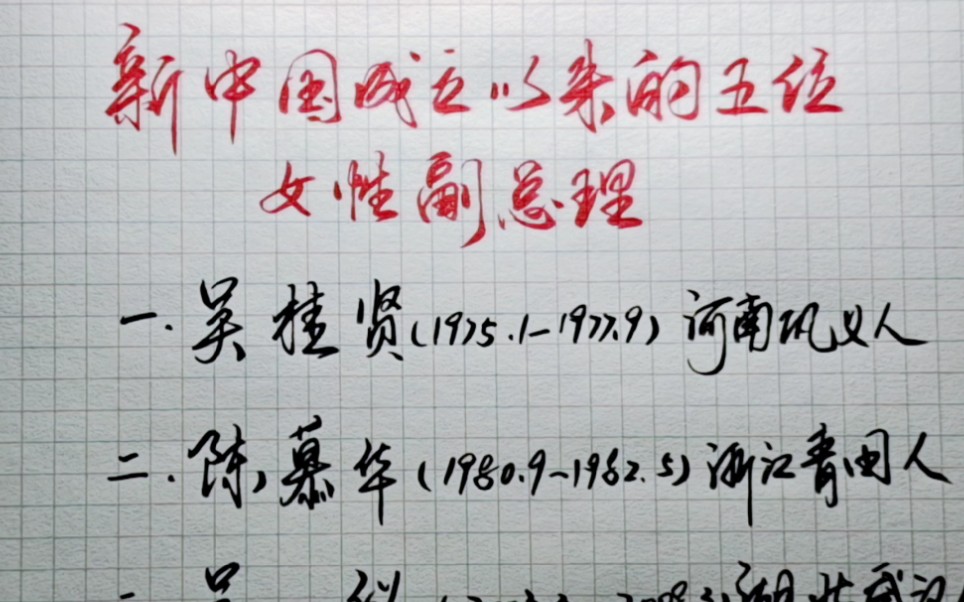 新中国成立以来的五位
女性副总理
一.吴桂贤(1975.1-1977.9)河南巩义人
二.陈慕华(1980.9-1982.5)浙江青田人